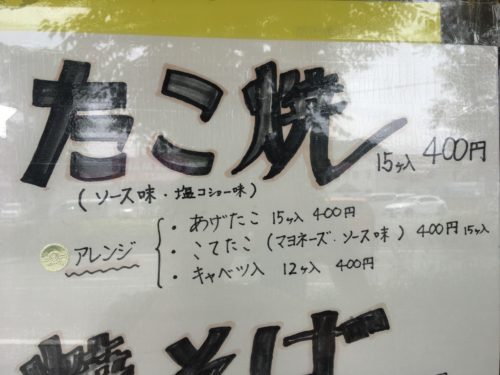 たこ焼 15ヶ入 400円
(ソース味・塩コショー味)
アレンジ
・あげたこ 15ヶ入 400円
・こてたこ (マヨネーズ・ソース味) 400円 15ヶ入
・キャベツ入 12ヶ入 400円
焼そば